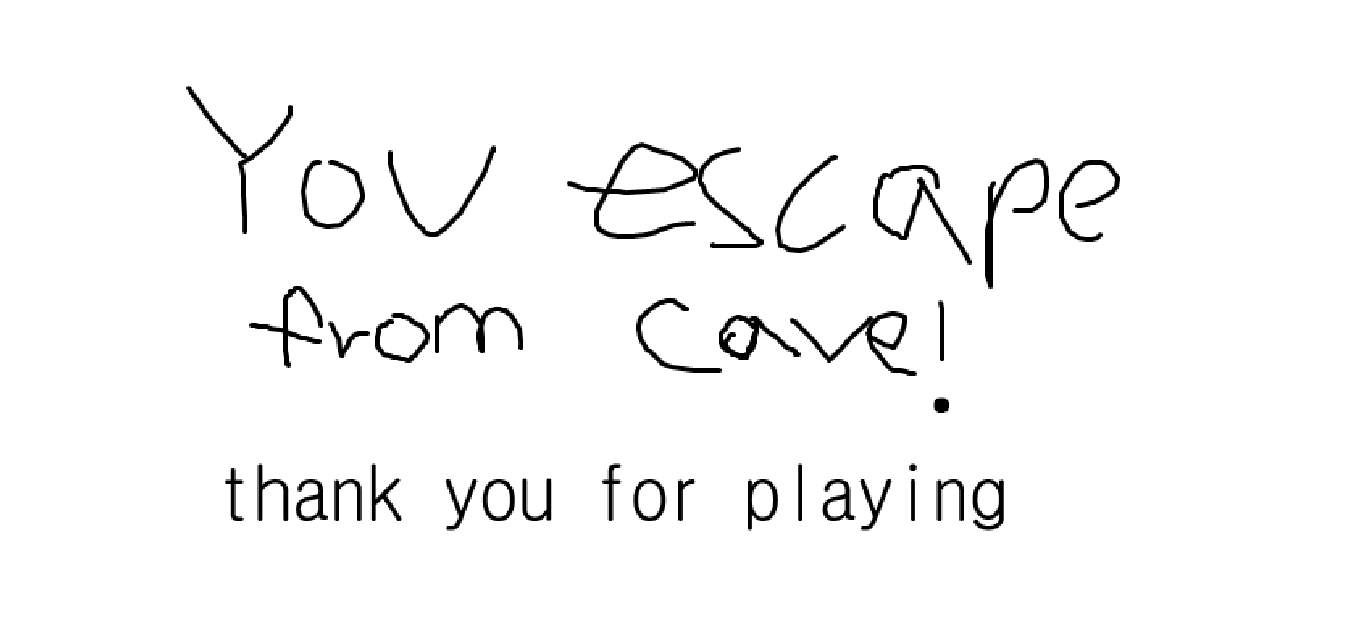 You escape
from cave!
thank you for playing